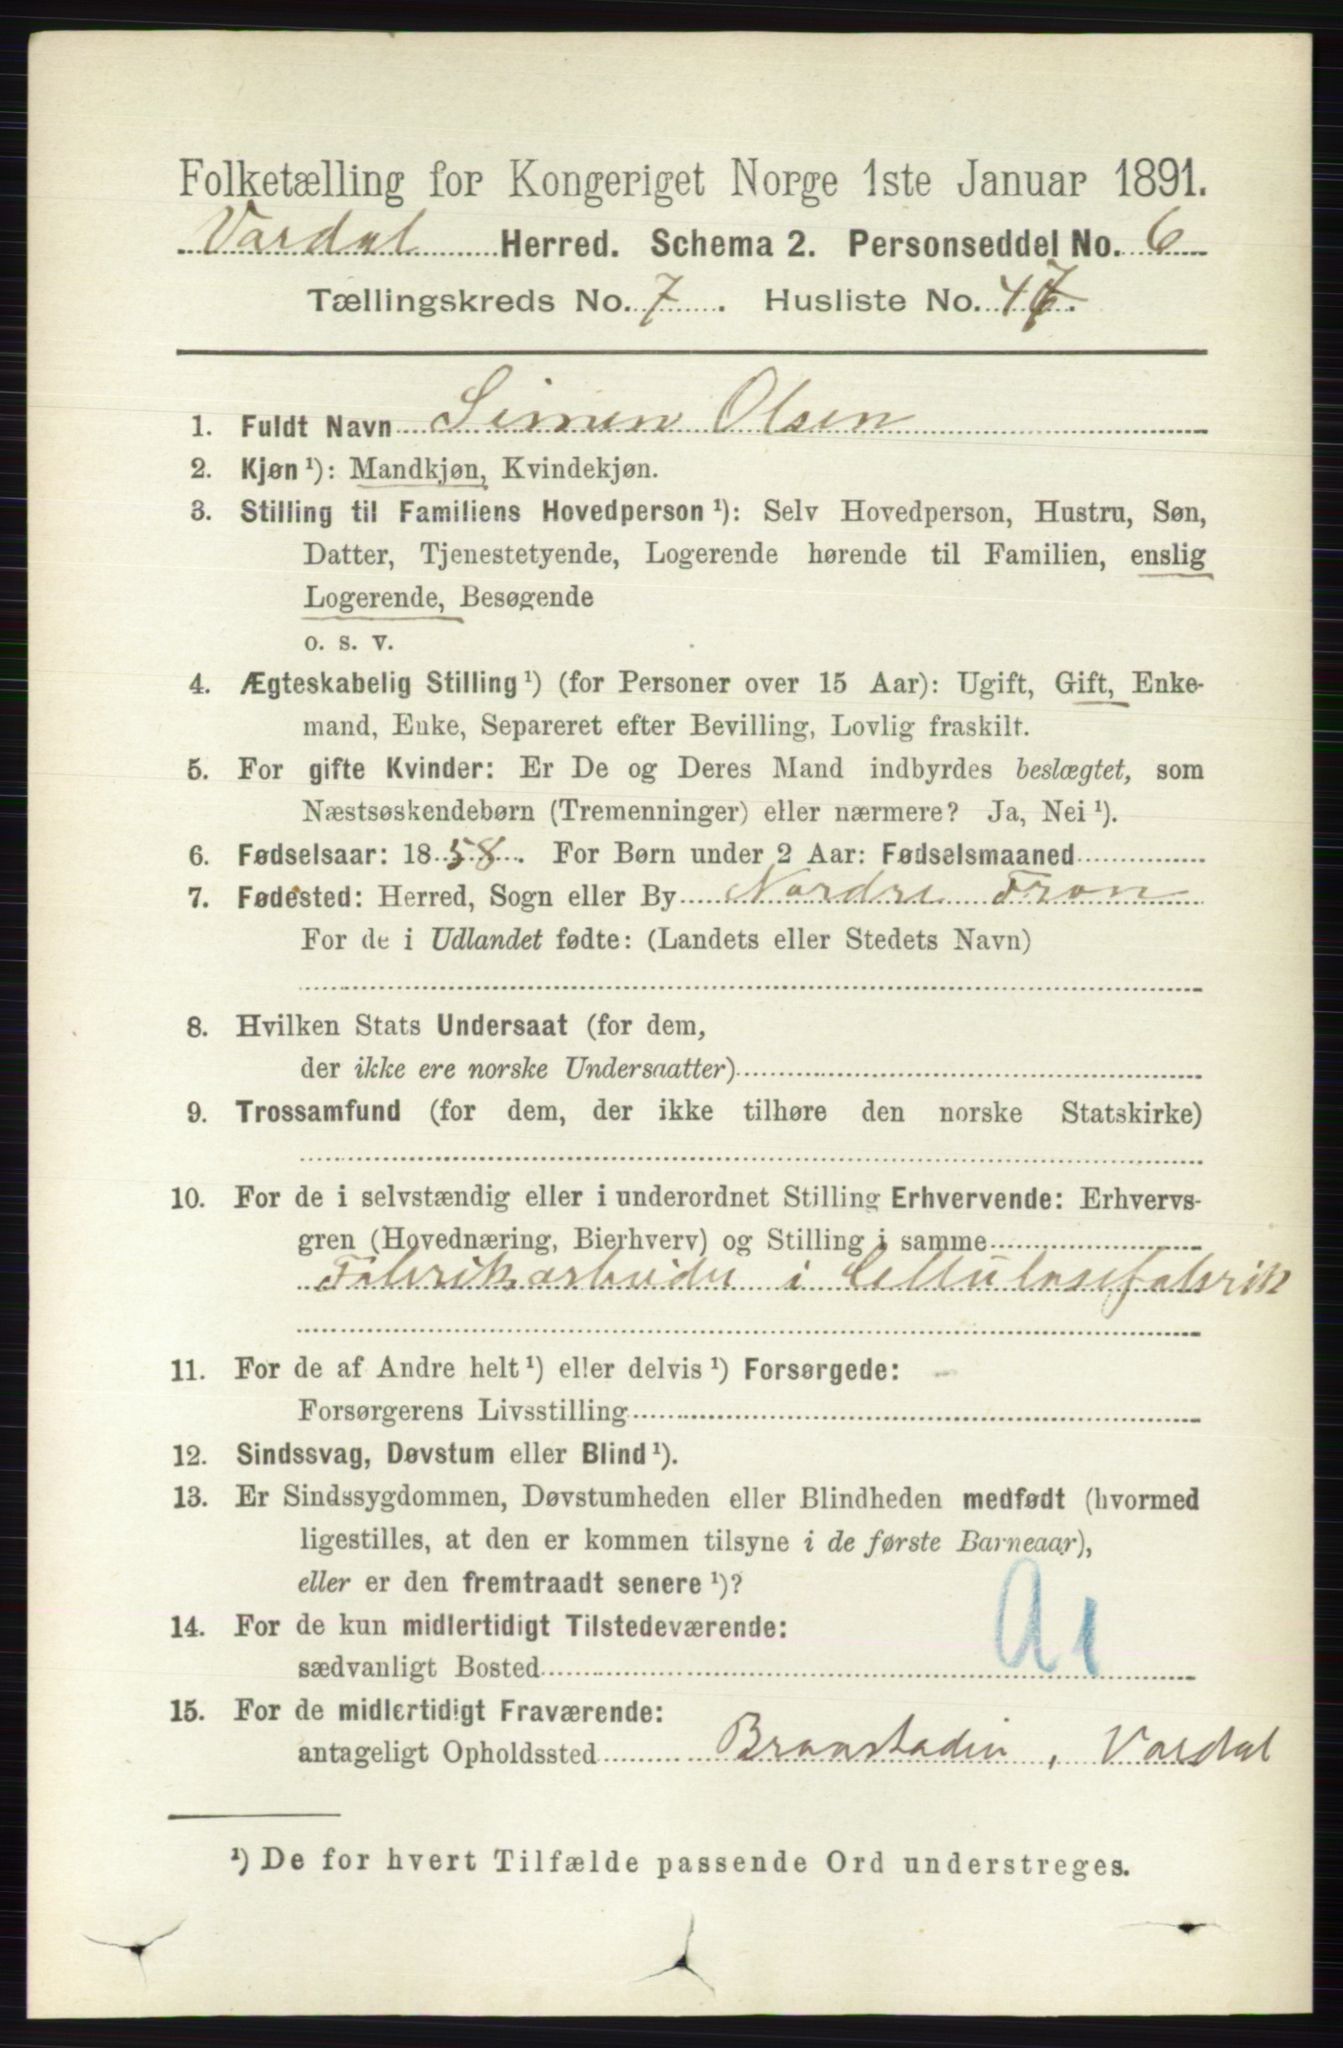 Folketælling for Kongeriget Norge 1ste Januar 1891.
Vardal Herred. Schema 2. Personseddel No. 6
Tællingskreds No. 7. Husliste No. 47.
1. Fuldt Navn Simen Olsen
2. Kjøn ¹): Mandkjøn, Kvindekjøn.
3. Stilling til Familiens Hovedperson ¹): Selv Hovedperson, Hustru, Søn,
Datter, Tjenestetyende, Logerende hørende til Familien, enslig
Logerende, Besøgende
o. s. v.
4. Ægteskabelig Stilling ¹) (for Personer over 15 Aar): Ugift, Gift, Enke-
mand, Enke, Separeret efter Bevilling, Lovlig fraskilt.
5. For gifte Kvinder: Er De og Deres Mand indbyrdes beslægtet, som
Næstsøskendebørn (Tremenninger) eller nærmere? Ja, Nei ¹).
6. Fødselsaar: 1858. For Børn under 2 Aar: Fødselsmaaned
7. Fødested: Herred, Sogn eller By Nordre Fron
For de i Udlandet fødte: (Landets eller Stedets Navn)
8. Hvilken Stats Undersaat (for dem,
der ikke ere norske Undersaatter)
9. Trossamfund (for dem, der ikke tilhøre den norske Statskirke)
10. For de i selvstændig eller i underordnet Stilling Erhvervende: Erhvervs-
gren (Hovednæring, Bierhverv) og Stilling i samme
Fabrikarbeider i Cellulosefabrik
11. For de af Andre helt ¹) eller delvis ¹) Forsørgede:
Forsørgerens Livsstilling
12. Sindssvag, Døvstum eller Blind ¹).
13. Er Sindssygdommen, Døvstumheden eller Blindheden medfødt (hvormed
ligestilles, at den er kommen tilsyne i de første Barneaar),
eller er den fremtraadt senere ¹)?
14. For de kun midlertidigt Tilstedeværende:
sædvanligt Bosted
A1
15. For de midlertidigt Fraværende:
antageligt Opholdssted Braastadin, Vardal
¹) De for hvert Tilfælde passende Ord understreges.